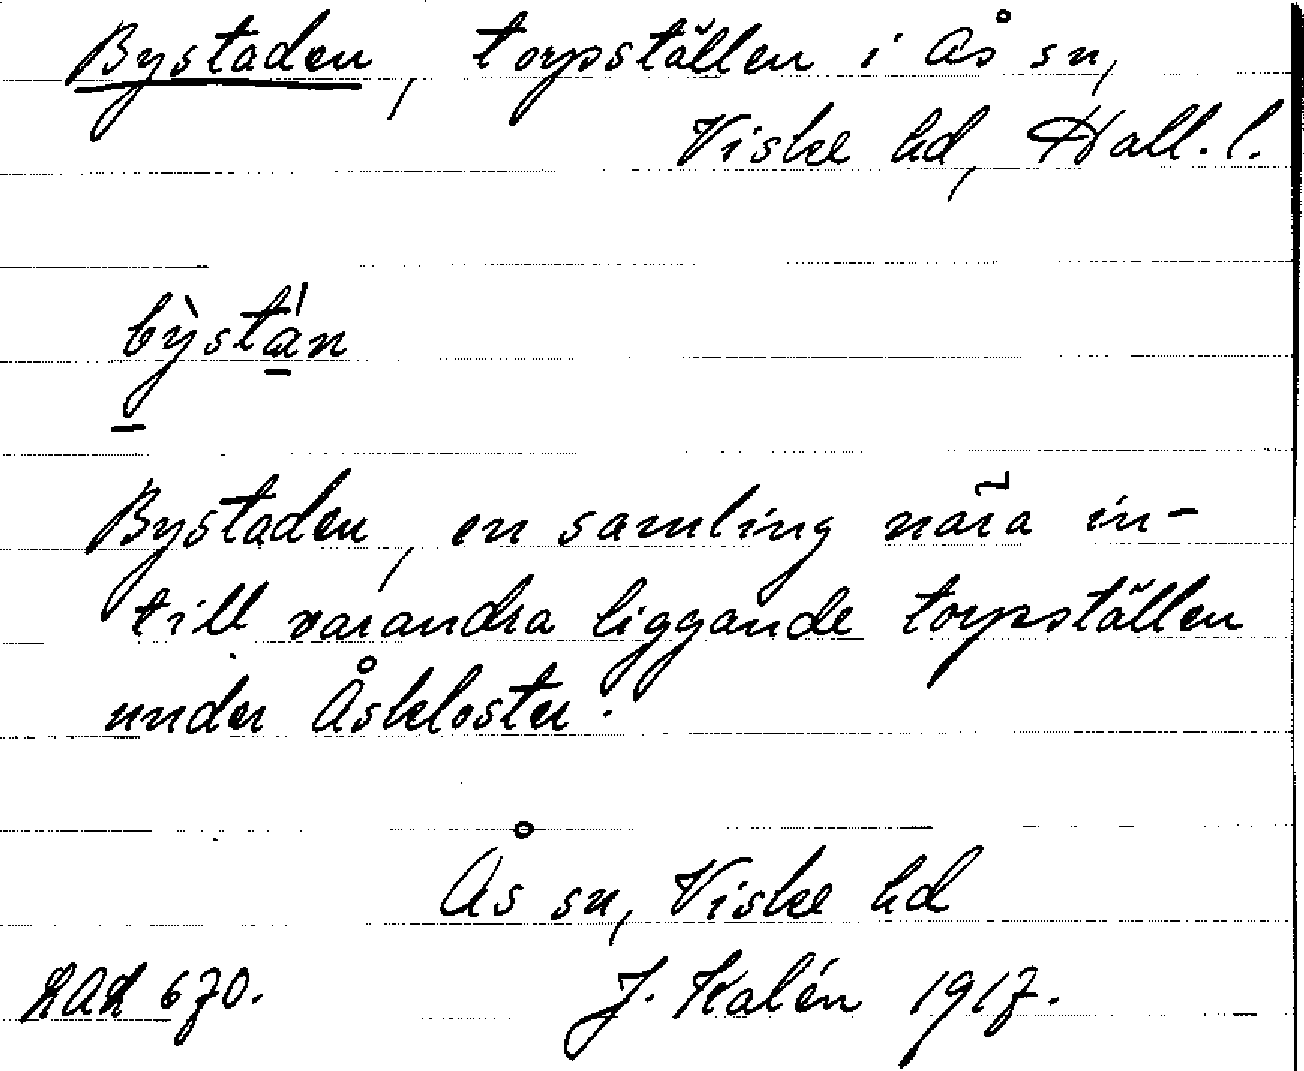 Bystaden, torpställen i Ås sn,
Viske hd, Hall. l.
bỳstán
Bystaden, en samling nära in-
till varandra liggande torpställen
under Åskloster.
Ås sn, Viske hd
J. Kalén 1917.